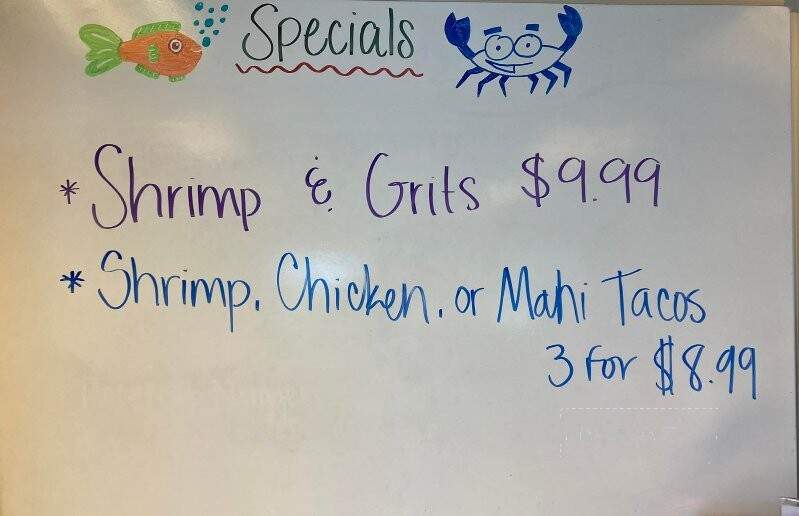 Specials
* Shrimp & Grits $9.99
* Shrimp, Chicken, or Mahi Tacos
3 for $8.99